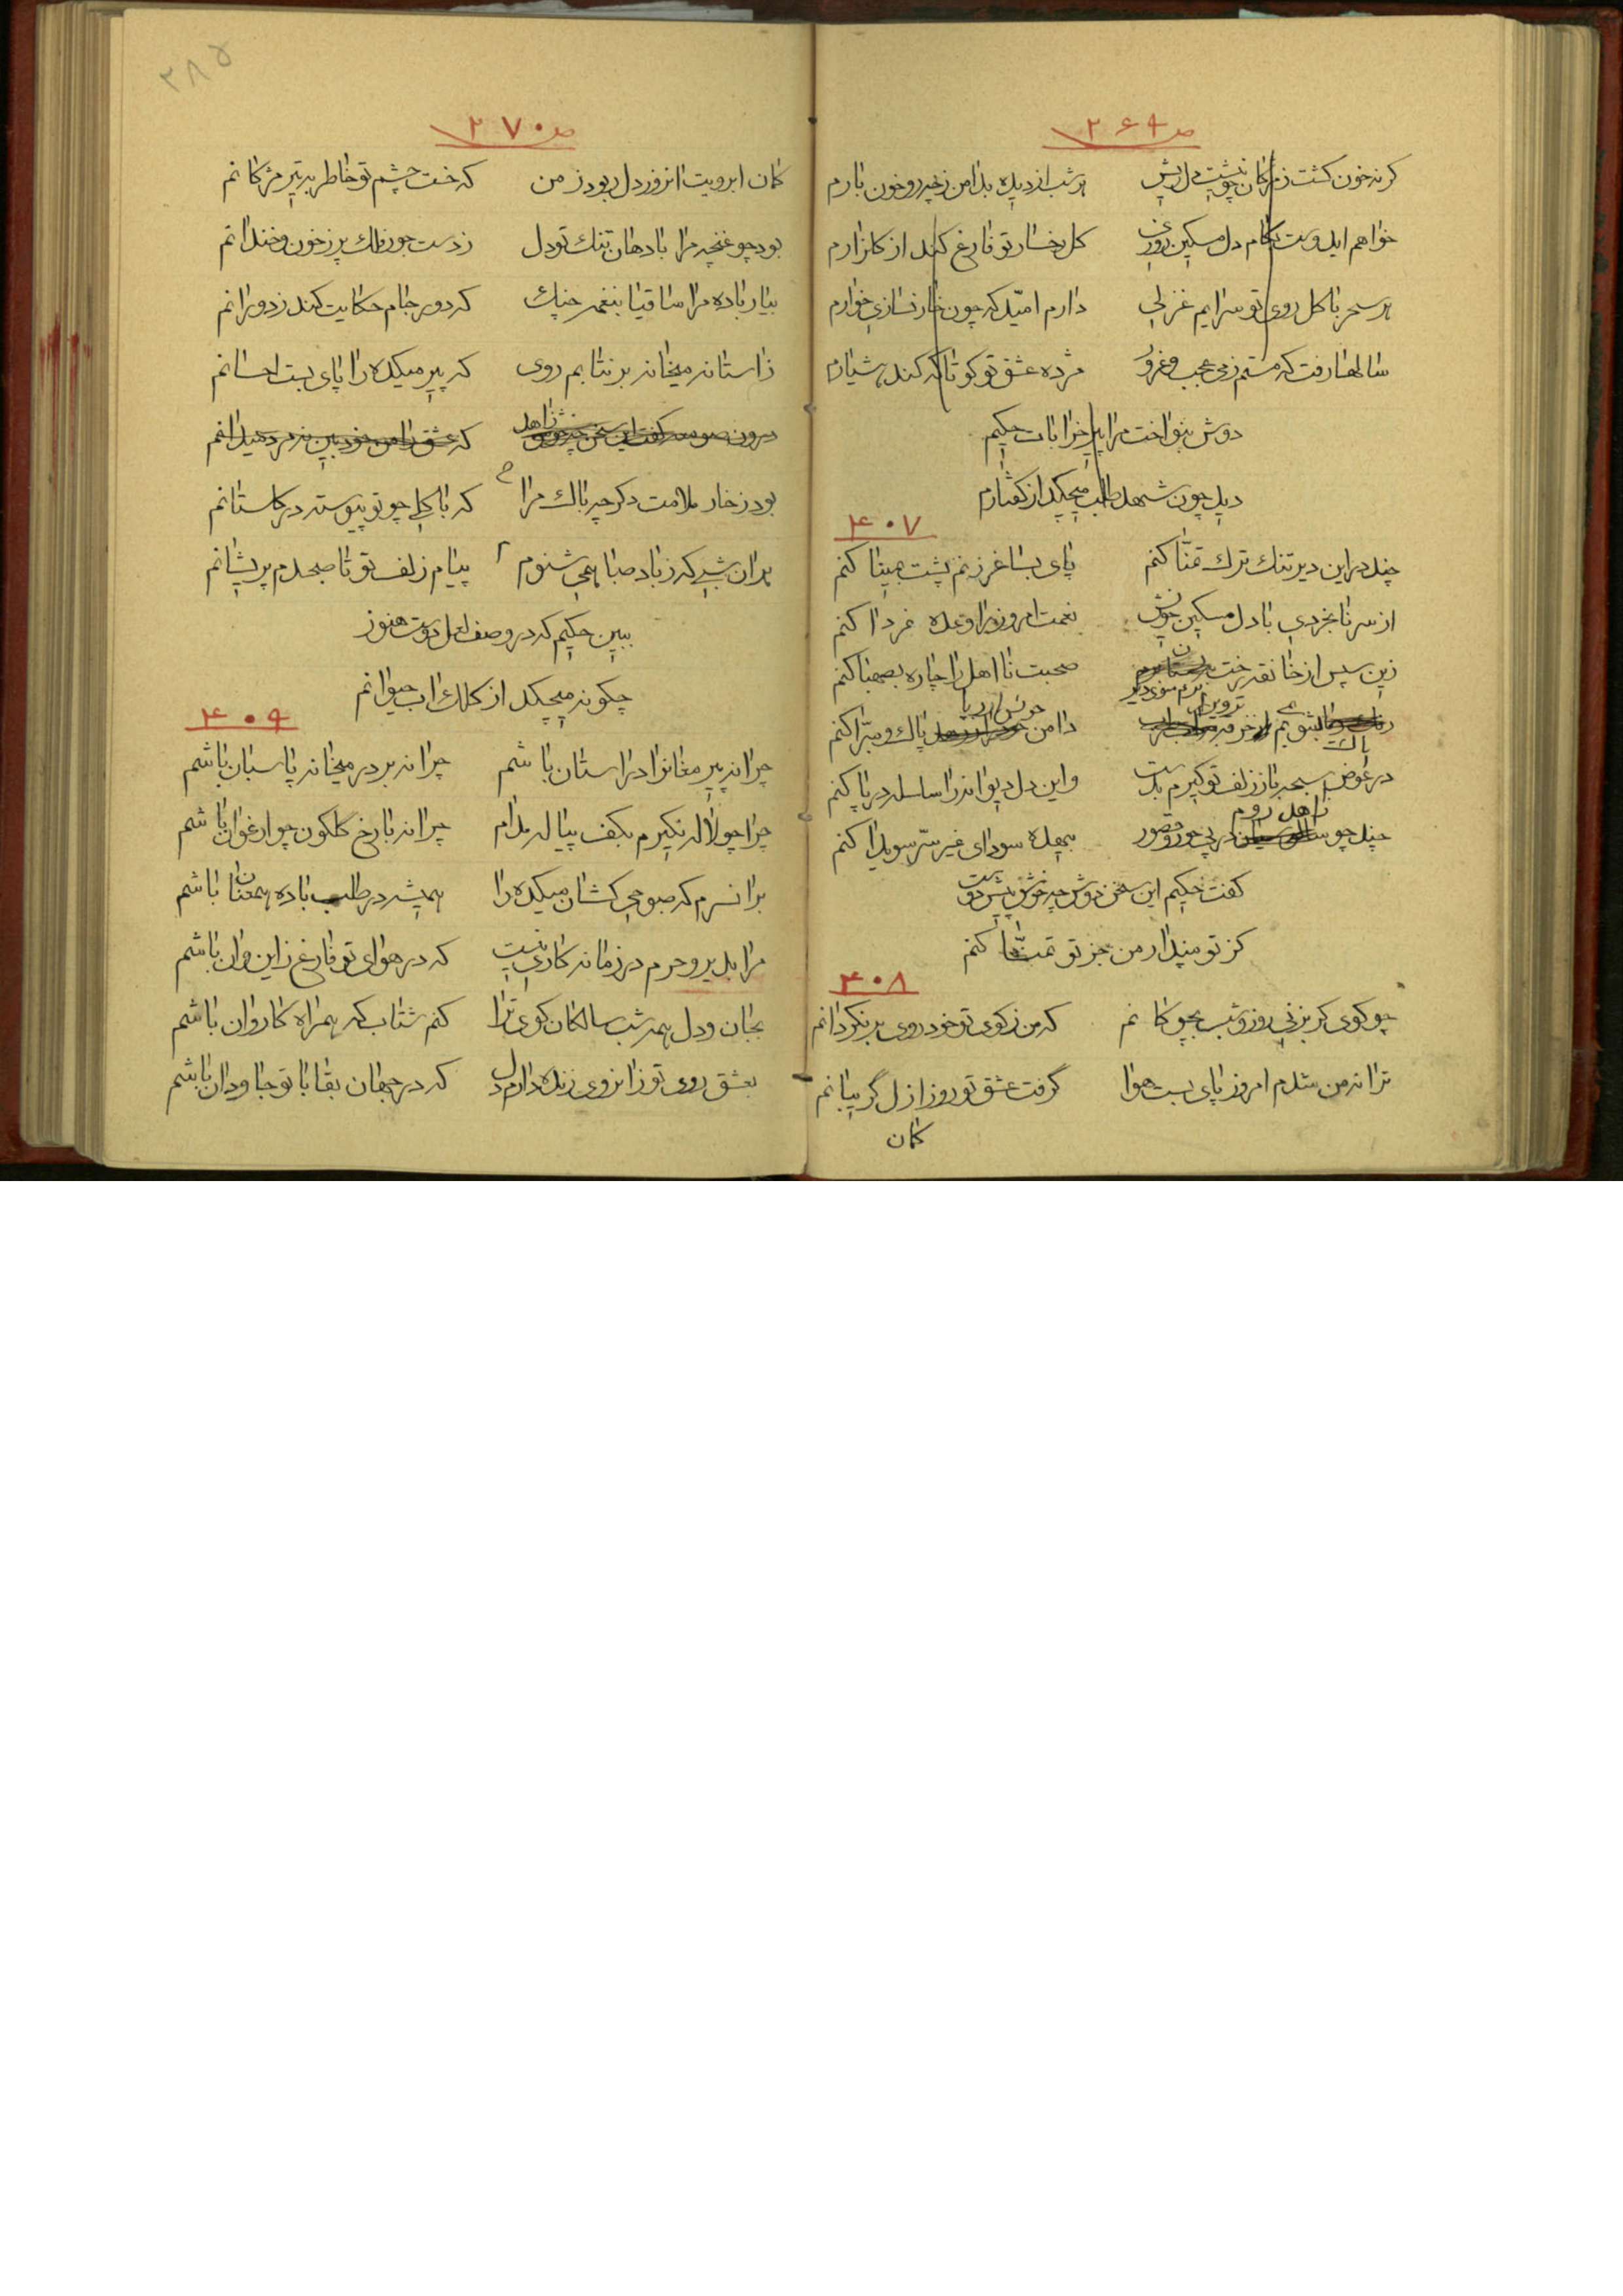 ص ۲۶۹
گر نه خون گشت ز مژگان تو پشت دل ریش    هر شب از دیده بدامن ز چه رو خون بارم
خواهم ایدوست بکام دل مسکین روزی    گل رخسار تو فارغ کند از گلزارم
هر سحر با گل روی تو سرایم غزلی    دارم امّید که چون خار نسازی خوارم
سالها رفت که مستم ز می عجب و غرور    مژده عشق تو کو تا که کند هشیارم
دوش بنواخت مرا پیر خرابات حکیم
دید چون شهد طلب میچکد از گفتارم
۴۰۷
چند در این دیر تنک ترک تمنّا کنم    پای بساغر زنم پشت بمینا کنم
از سر نابخردی با دل مسکین خویش    نعمت امروز را وعده فردا کنم
زین سپس از خانقه رخت برم سوی دیر    صحبت نااهل را چاره بصهبا کنم
پاک بشویم ز می خرقه تزویر    دامن خویش از ریا پاک و مبرّا کنم
در عوض سبحه باز زلف تو گیرم بدست    واین دل دیوانه را سلسله در پا کنم
چند چو زاهد روم در پی حور و قصور    بیهده سودای غیر سرّ سویدا کنم
گفت حکیم این سخن دوش چه خوش پیش دوست
کز تو مپندار من جز تو تمنّا کنم
۴۰۸
چو کوی گر بزنی روز و شب بچوکانم    که من ز کوی تو خود روی برنگردانم
ترا نه من شدم امروز پای بست هوا    گرفت عشق تو روز ازل گریبانم
کمان
۲۸۵
ص ۲۷۰
کمان ابرویت انروز دل ربود ز من    که خست چشم تو خاطر به تیر مژکانم
بود چو غنچه مرا با دهان تنک تو دل    ز دست جور فلک پر ز خون و خندانم
بیار باده مرا ساقیا بنغمه چنک    که دور جام حکایت کند ز دورانم
ز استانه میخانه برنتابم روی    که پیر میکده را پای بست احسانم
درون صومعه گفت این سخن چه خوش زاهد    که عشق دامن خود بین نه مرد میدانم
بود ز خار ملامت دگر چه باک مرا    که با گلی چو تو پیوسته در گلستانم
بدان شبی که ز باد صبا همی شنوم    پیام زلف تو تا صبحدم پریشانم
ببین حکیم که در وصف لعل دوست هنوز
چگونه میچکد از کلک اب حیوانم
۴۰۹
چرا نه پیر مغانرا در استان باشم    چرا نه بر در میخانه پاسبان باشم
چرا چو لاله نگیرم بکف پیاله مدام    چرا نه با رخ گلگون چو ارغوان باشم
برانسرم که صبوحی کشان میکده را    همیشه در طلب باده همعنان باشم
مرا بدیر و حرم در زمانه کاری نیست    که در هوای تو فارغ ز این و ان باشم
بجان و دل همه شب سالکان کوی ترا    کنم شتاب که همراه کاروان باشم
بعشق روی تو زانروی زنده دارم دل    که در جهان بقا با تو جاودان باشم